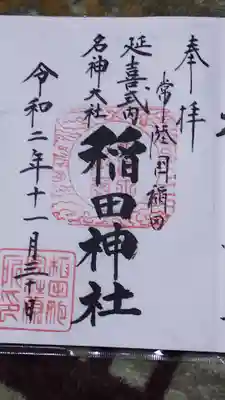 奉拝
常陸国稲田
延喜式内
名神大社
稲田神社
令和二年十一月三十日